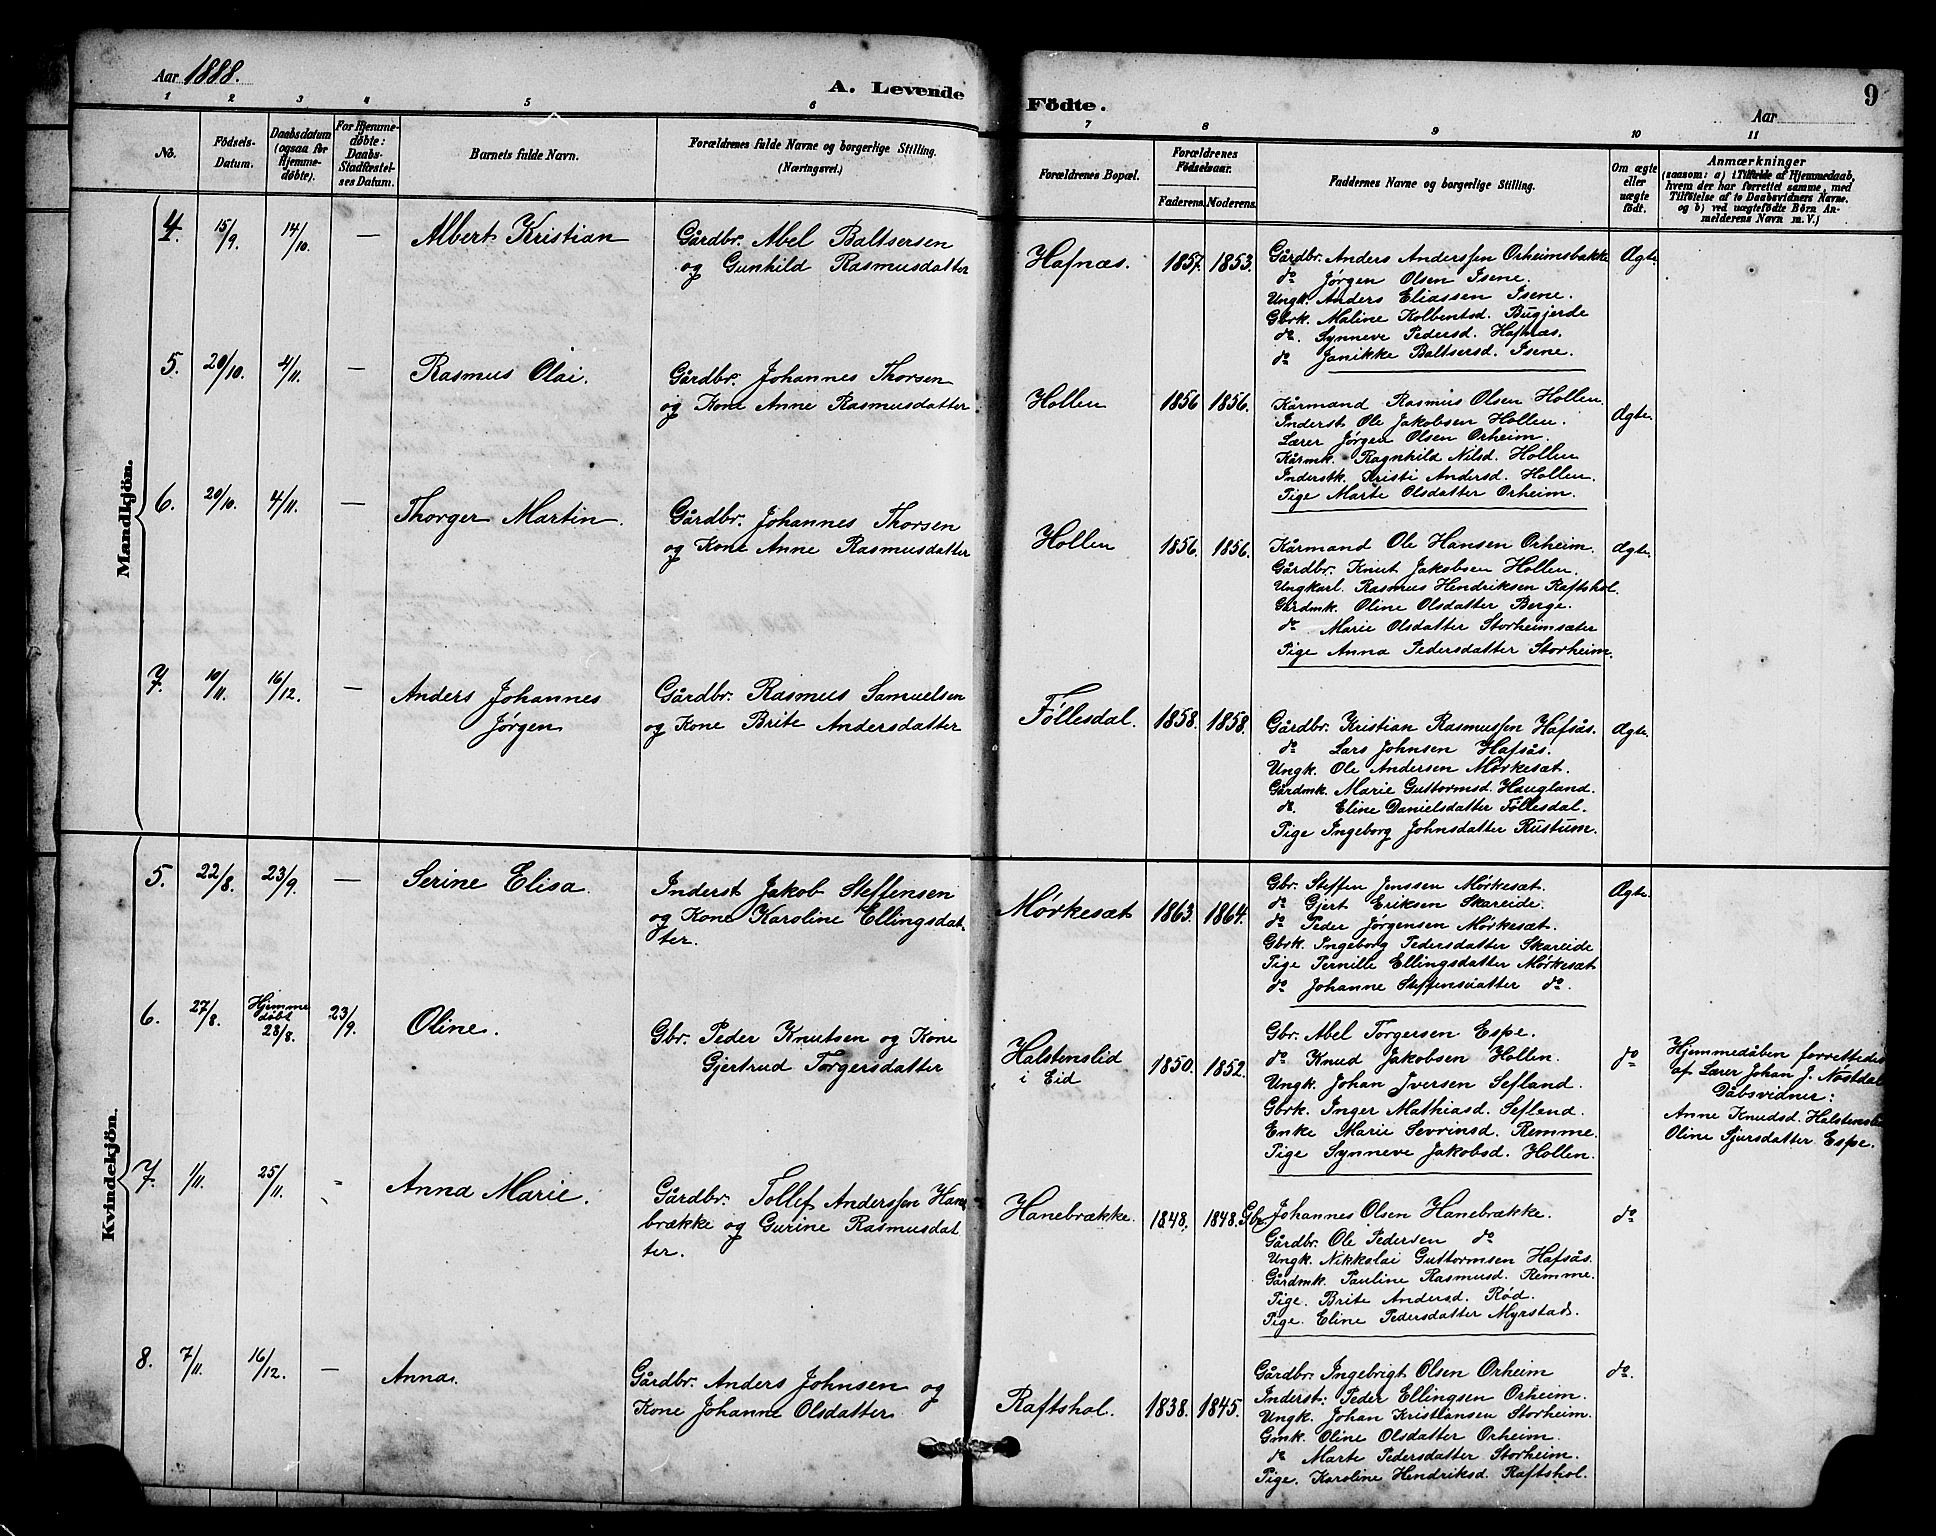 Aar 1888.
A. Levende Födte.
Aar
9
1 2 3 4 5 6 7 8 9 10 11
No.
Födsels-
Datum.
Daabsdatum
(ogsaa for
Hjemme-
døbte).
For Hjemme-
døbte:
Daabs-
Stadfæstel-
ses Datum.
Barnets fulde Navn.
Forældrenes fulde Navne og borgerlige Stilling.
(Næringsvei.)
Forældrenes Bopæl.
Forældrenes
Fødselsaar.
Faderens. Moderens.
Faddernes Navne og borgerlige Stilling.
Om ægte
eller
uægte
født.
Anmærkninger
(saasom: a) i Tilfælde af Hjemmedaab,
hvem der har forrettet samme, med
Tilføielse af to Daabsvidners Navne.
og b) ved uægtefødte Börn An-
melderens Navn m. V.)
Mandkjön.
4. 15/9. 14/10. — Albert Kristian
Gårdbr. Abel Baltsersen
og Gunhild Rasmusdatter
Hafnæs. 1857. 1853.
Gårdbr. Anders Anderssen Orheimsbakke
do Jørgen Olsen Isene.
Ungk. Anders Eliassen Isene.
Gbrk. Maline Kolbentsd. Bugjerde
do. Synneve Pedersd. Hafnæs.
do Janikke Baltsersd. Isene.
Ægte.
5. 20/10. 4/11. — Rasmus Olai.
Gårdbr. Johannes Thorsen
og Kone Anne Rasmusdatter
Hollen 1856 1856.
Kårmand Rasmus Olsen Hollen.
Inderst Ole Jakobsen Hollen.
Lærer Jørgen Olsen Orheim.
Kårmk. Ragnhild Nilsd. Hollen
Inderstk. Kristi Andersd. Hollen.
Pige Marte Olsdatter Orheim.
Ægte.
6. 20/10. 4/11. — Thorger Martin.
Gårdbr. Johannes Thorsen
og Kone Anne Rasmusdatter
Hollen 1856. 1856.
Kårmand Ole Hansen Orheim.
Gårdbr. Knut Jakobsen Hollen.
Ungkarl. Rasmus Hendriksen Raftshol.
Gårdmk. Oline Olsdatter Berge.
do Marie Olsdatter Storheimsæter
Pige Anna Pedersdatter Storheim.
Ægte.
7. 10/11. 16/12. — Anders Johannes
Jørgen
Gårdbr. Rasmus Samuelsen
og Kone Brite Andersdatter
Föllesdal. 1858. 1858.
Gårdbr. Kristian Rasmussen Hafsås.
do Lars Johnsen Hafsås.
Ungk. Ole Andersen Mørkesæt.
Gårdmk. Marie Guttormsd. Haugland.
do. Eline Danielsdatter Föllesdal.
Pige Ingeborg Johnsdatter Rustum.
Ægte.
Kvindekjön.
5. 22/8. 23/9. — Serine Elisa.
Inderst Jakob Steffensen
og Kone Karoline Ellingsdat-
ter.
Mørkesæt 1863. 1864.
Gbr. Steffen Jenssen Mørkesæt.
do Gjert Eriksen Skareide.
do Peder Jørgensen Mørkesæt.
Gbrk. Ingeborg Pedersdatter Skareide
Pige Pernille Ellingsdatter Mørkesæt
do Johanne Steffensdatter do.
Ægte.
6. 27/8. Hjemme
døbt
28/8. 23/9. Oline.
Gbr. Peder Knutsen og Kone
Gjertrud Torgersdatter
Halstenslid
i Eid
1850. 1852.
Gbr. Abel Torgersen Espe.
do Knud Jakobsen Hollen.
Ungk. Johan Iversen Sefland.
Gbrk. Inger Mathiasd. Seflend.
Enke Marie Sevrinsd. Remme.
Pige Synneve Jakobsd. Hollen.
do
Hjemmedåben forrettedes
af Lærer Johan J. Nøstdal
Dåbsvidner:
Anne Knudsd. Halstenslid
Oline Sjursdatter Espe.
7. 1/11. 25/11. - Anna Marie.
Gårdbr. Tollef Anderssen Hane-
brække og Gurine Rasmusdat
ter.
Hanebrække. 1848. 1848.
Gbr. Johannes Olsen Hanebrække.
Gårdbr. Ole Pedersen do
Ungk. Nikkolai Guttormsen Hafsås.
Gårdmk. Pauline Rasmusd. Remme.
Pige. Brite Andersd. Rød.
Pige. Eline Pedersdatter Myrstad.
do
8. 7/11. 16/12. — Anna.
Gårdbr. Anders Johnsen og
Kone Johanne Olsdatter.
Raftshol. 1838. 1845.
Gårdbr. Ingebrigt Olsen Orheim
Inderst: Peder Ellingsen Orheim.
Ungk. Johan Kristiansen Storheim.
Gmk. Oline Olsdatter Orheim.
do Marte Pedersdatter Storheim.
Pige. Karoline Hendriksd. Raftshol.
do.